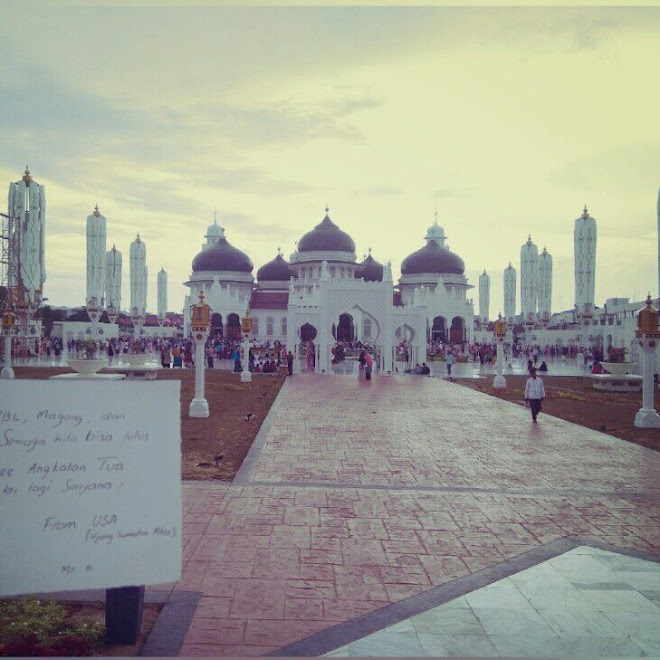 PBL, Magang, dan
Semoga kita bisa lulus
Angkatan Tua
lagi Sarjana!
From USA
(Ujung Sumatra Aceh)
Mr. K